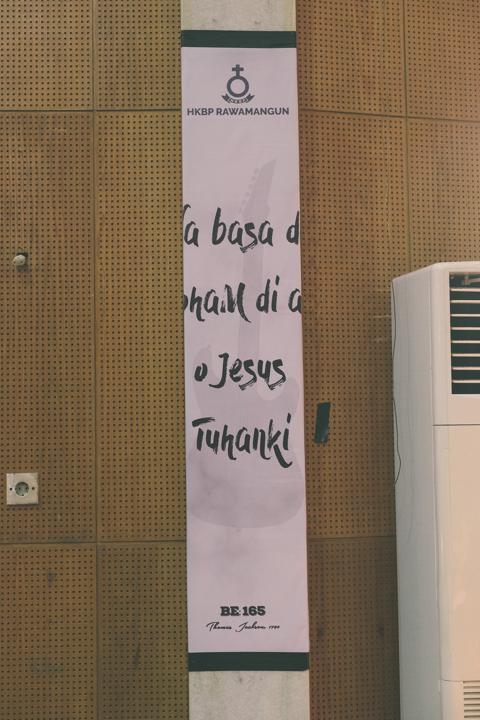 HKBP RAWAMANGUN
basa
di
o Jesus
Tuhanki
BE 165
Thomas Jackson 1780